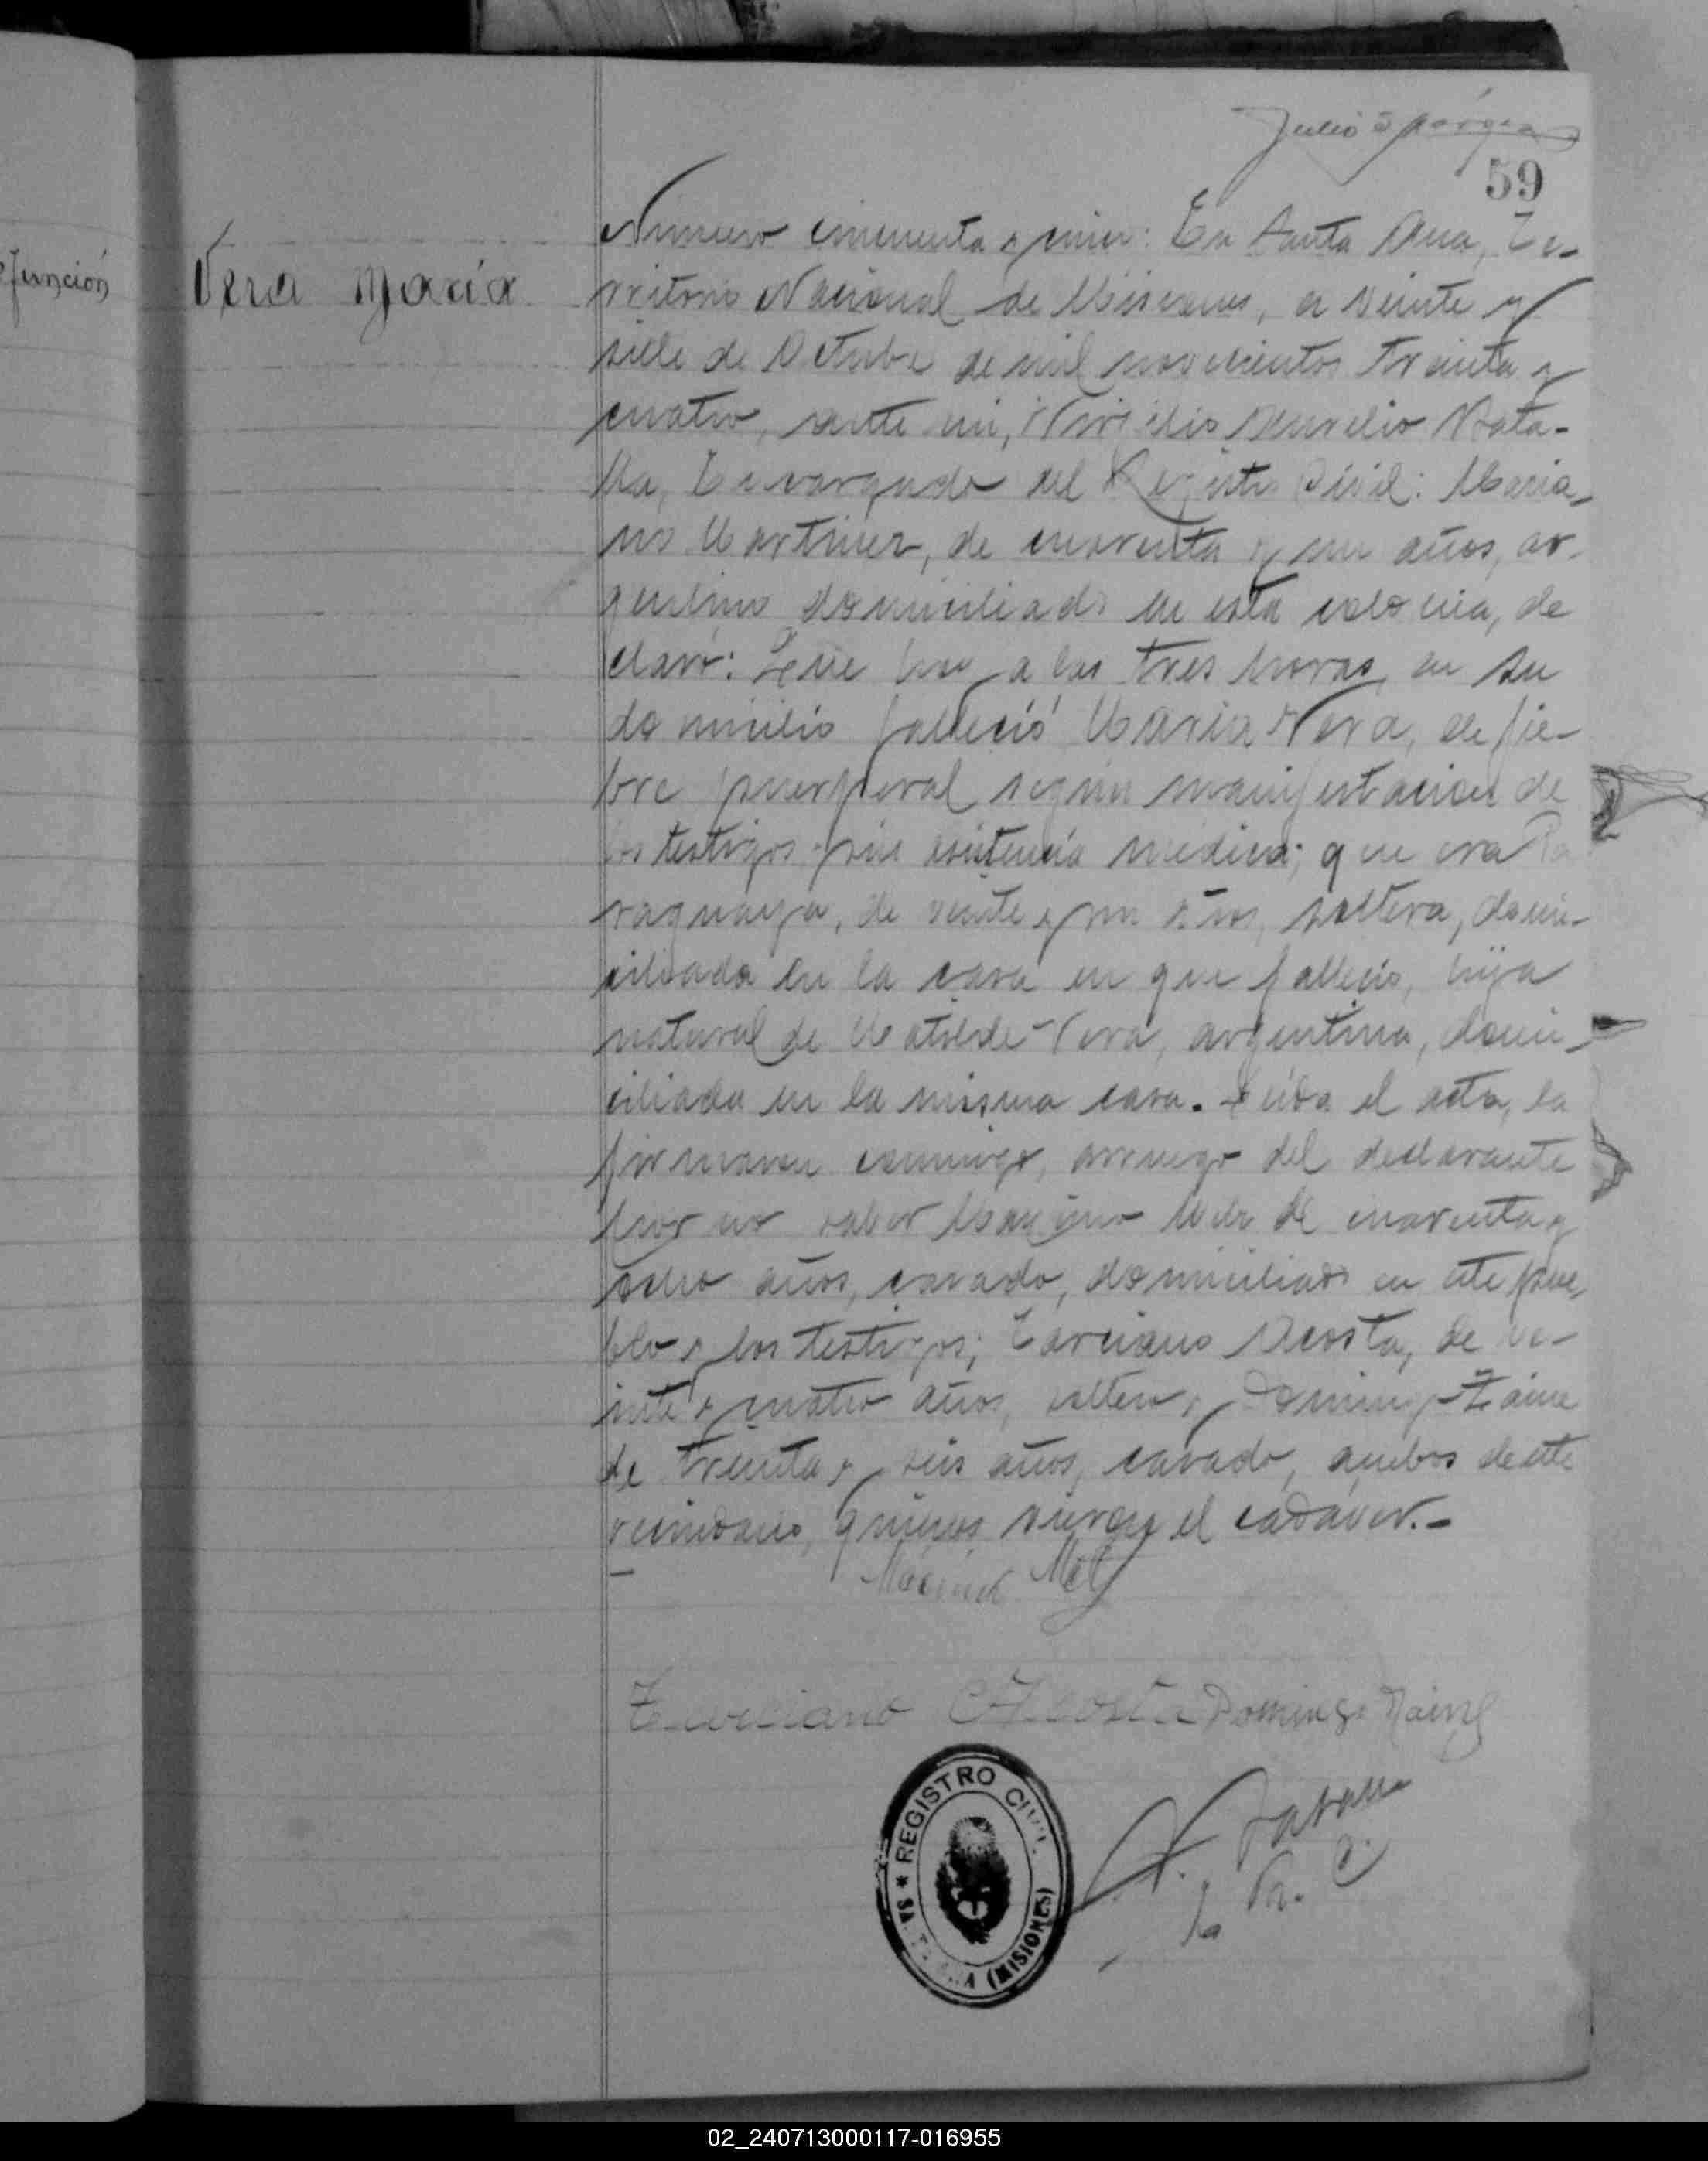 Julio
59
efunción
Vera María
Número cincuenta y cinco: En Santa Ana, Te-
rritorio Nacional de Misiones, a veinte y
siete de Octubre de mil novecientos treinta y
cuatro, ante mi, Virgilio Aurelio
Encargado del Registro Civil: Maria-
no Martinez, de cuarenta y un años, ar-
gentino domiciliado en esta colonia, de
claró: Que hoy a las tres horas, en su
domicilio falleció Maria Vera, de fie-
bre puerperal según manifestacion de
los testigos y sin asistencia médica; que era Pa
raguaya, de veinte y un años, soltera, domi-
ciliada en la casa en que falleció, hija
natural de Matilde Vera, argentina, domi-
ciliada en la misma casa. Leída el acta, la
firmaron conmigo, arruego del declarante
por no saber Maximo de cuarenta y
ocho años, casado, domiciliado en este pue-
blo y los testigos; Tarciano Acosta, de ve-
inte y cuatro años, soltero y Domingo
de treinta y seis años, casado, ambos de este
vecindario, quienes vieron el cadáver.-
Tarciano Acosta Domingo
REGISTRO CIVIL
SANTA ANA (MISIONES)
02_240713000117-016955